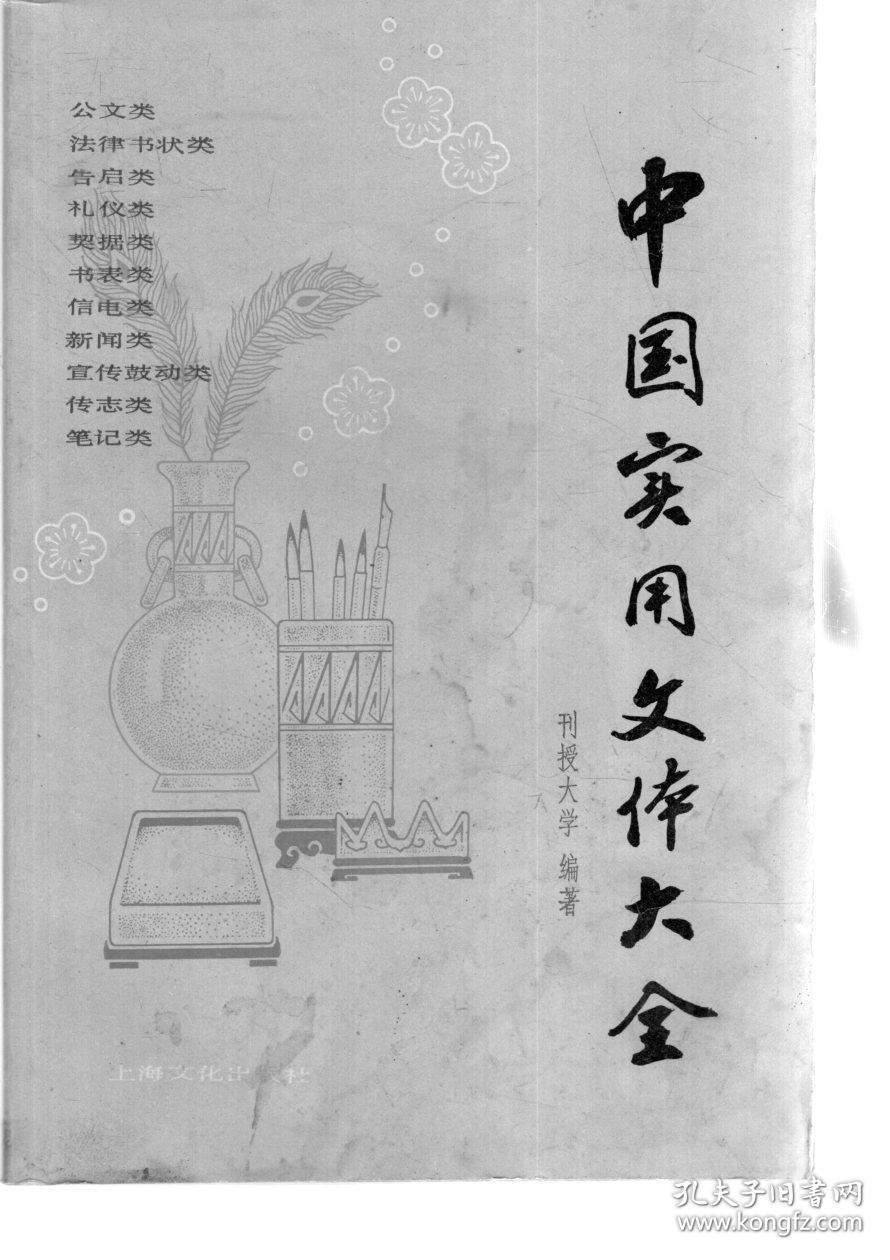 公文类
法律书状类
告启类
礼仪类
契据类
书表类
信电类
新闻类
宣传鼓动类
传志类
笔记类
中国实用文体大全
刊授大学 编著
上海文化出版社
孔夫子旧书网
www.kongfz.com